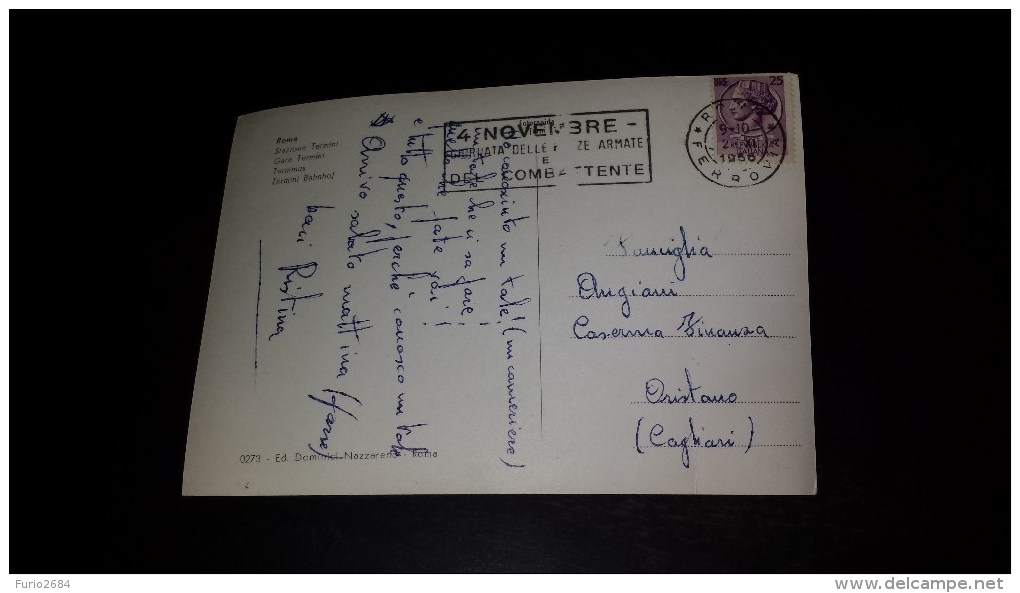 Roma
Stazione Termini
Gare Termini
Terminus
Termini Bahnhof
4 NOVEMBRE -
GIORNATA DELLE FORZE ARMATE
E
DEL COMBATTENTE
25
ROMA
9-10
2 XI
1956
FERROVIA
conosciuto un tale! (un cameriere)
che ci sa fare!
fate voi!
e tutto questo, perchè conosco un tale
Arrivo sabato mattina (forse)
baci Ristina
Famiglia
Angiani
Caserma Finanza
Oristano
(Cagliari)
0273 - Ed. Dominici Nazzareno - Roma
Furio2684
delcampe.net